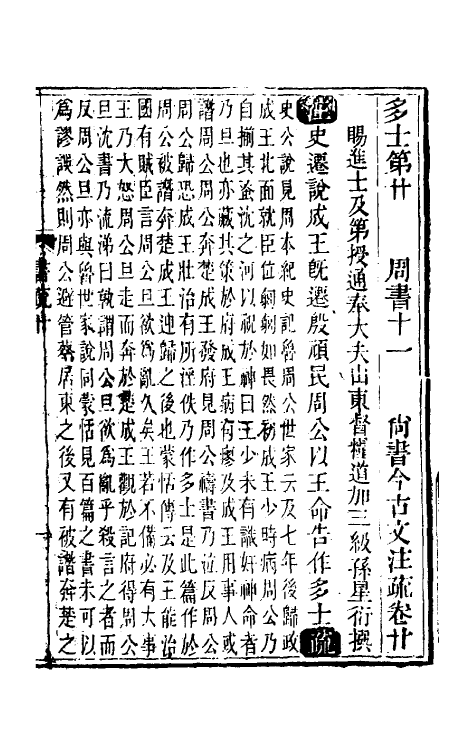 多士第廿　周書十一　尚書今古文注疏卷廿
賜進士及第授通奉大夫山東督糧道加三級孫星衍撰
注史遷說成王既遷殷頑民周公以王命告作多士疏
史公說見周本紀史記魯周公世家云及七年後歸政
成王北面就臣位匔匔如畏然初成王少時病周公乃
自揃其蚤沈之河以祝於神曰王少未有識奸神命者
乃旦也亦藏其策於府成王病有瘳及成王用事人或
譖周公周公奔楚成王發府見周公禱書乃泣反周公
周公歸恐成王壯治有所淫佚乃作多士是此篇作於
周公被譖奔楚成王迎歸之後也蒙恬傳云及王能治
國有賊臣言周公旦欲爲亂久矣王若不備必有大事
王乃大怒周公旦走而奔於楚成王觀於記府得周公
旦沈書乃流涕曰孰謂周公旦欲爲亂乎殺言之者而
反周公旦亦與魯世家說同蒙恬見百篇之書未可以
爲謬誤然則周公避管蔡居東之後又有被譖奔楚之